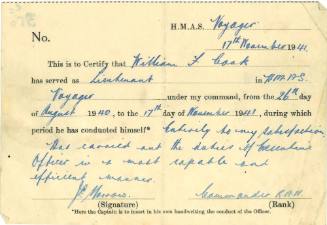 H.M.A.S. Voyager
17th November 1941
No.
This is to Certify that William F Cook
has served as Lieutenant in H.M.A.S.
Voyager under my command, from the 26th day
of August 1940, to the 17th day of November 1941, during which
period he has conducted himself* Entirely to my satisfaction
Has carried out the duties of Executive
Officer in a most capable and
efficient manner.
J. Morrow. Commander R.A.N.
(Signature) (Rank)
*Here the Captain is to insert in his own handwriting the conduct of the Officer.